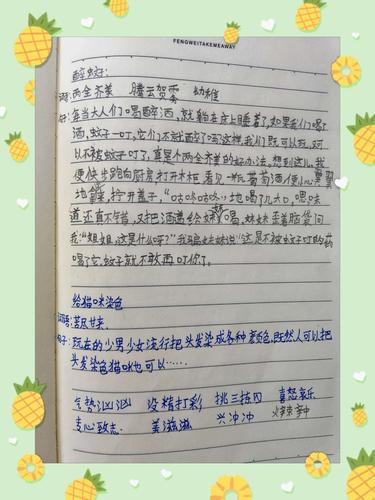 FENGWEITAKEMEAWAY
醉蚊子:
词: 两全齐美 腾云贺雾 幼稚
好: 每当大人们喝醉酒,就躺在床上睡着了,如果我们喝了
酒,蚊子一叮,它们不就醉了吗?这样,我们既可以玩,又可
以不被蚊子叮了,真是个两全齐美的好办法。想到这儿,我
便快步跑向厨房打开木柜看见一瓶葡萄酒便小心翼翼
地拿,拧开盖子,“咕咚咕咚”地喝了几大口,嗯味
道还真不错,又把酒递给妹妹喝,妹妹歪着脑袋问
我“姐姐,这是什么呀?”我骗妹妹说“这是不被蚊子叮的药
喝了它,蚊子就不敢再叮你了。
给猫咪染色
词语: 苦尽甘来.
句子: 现在的少男少女流行把头发染成各种颜色,既然人可以把
头发染色猫咪也可以……
气势汹汹 没精打彩 挑三拣四 喜怒哀乐
专心致志 美滋滋 兴冲冲